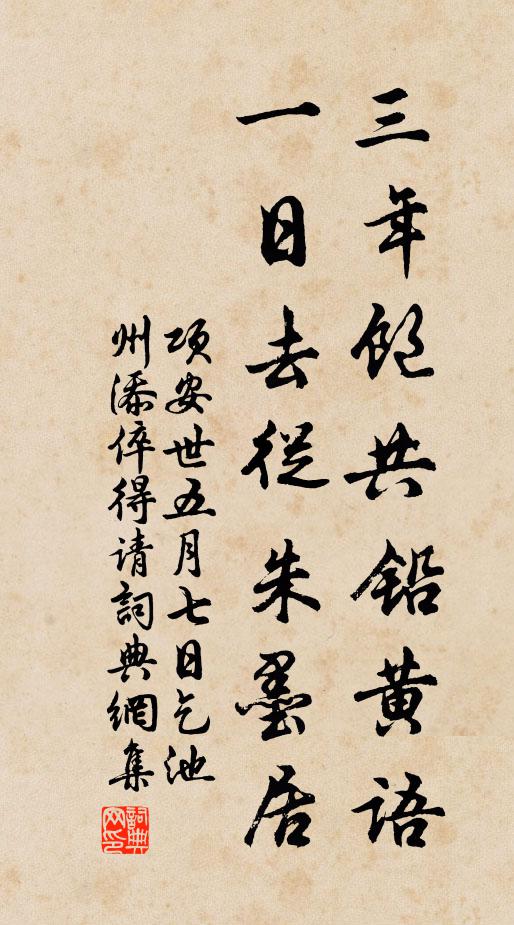 三年饱共铅黄语
一日去从朱墨居
项安世五月七日乞池
州添倅得请詞典網集
詞典网印